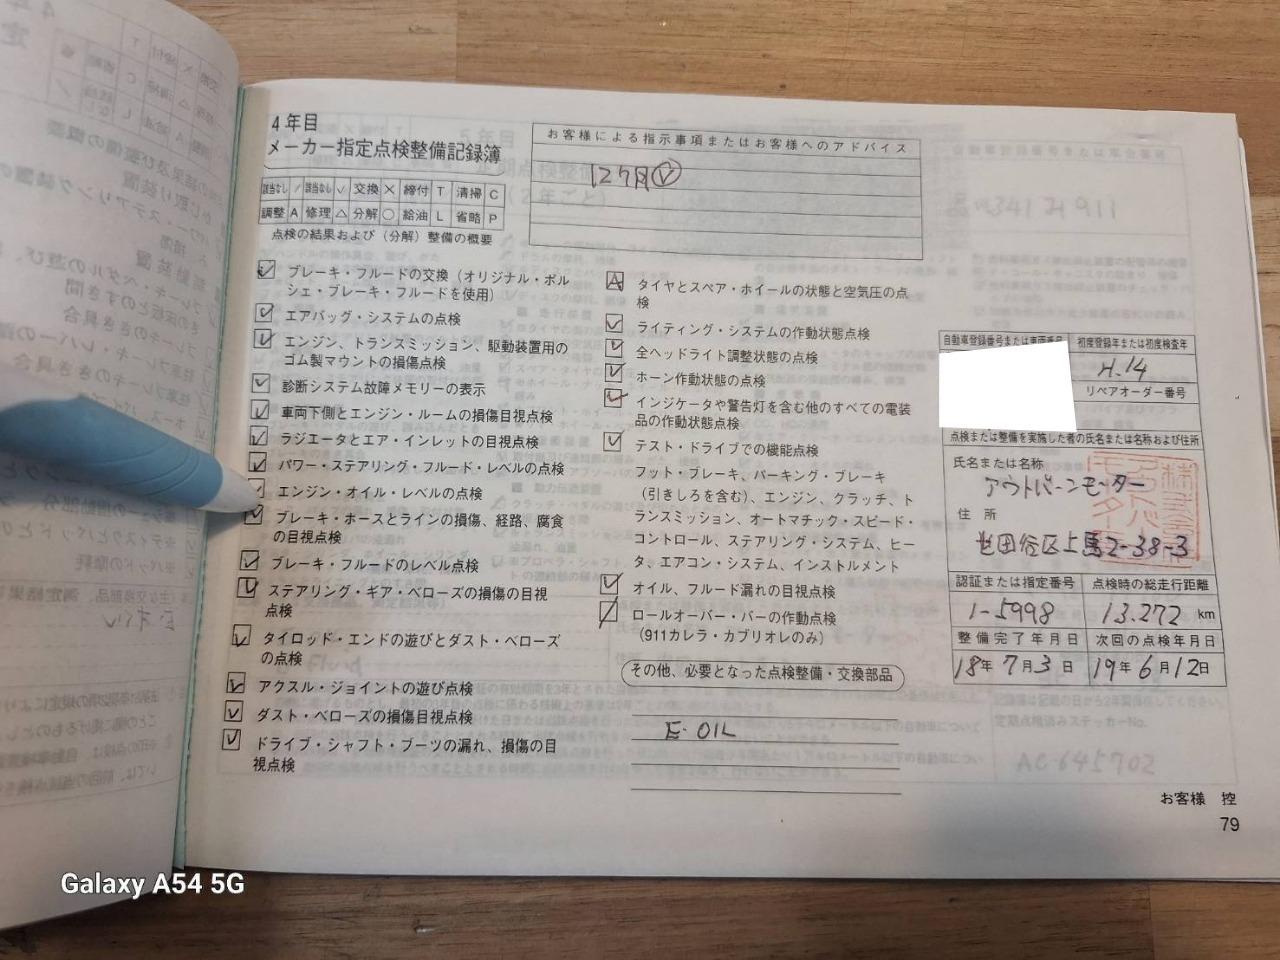 4年目
メーカー指定点検整備記録簿
該当なし / 該当なし ✓ 交換 × 締付 T 清掃 C
調整 A 修理 △ 分解 ○ 給油 L 省略 P
点検の結果および（分解）整備の概要
お客様による指示事項またはお客様へのアドバイス
12ヶ月 ✓
ブレーキ・フルードの交換（オリジナル・ポル
シェ・ブレーキ・フルードを使用）
エアバッグ・システムの点検
エンジン、トランスミッション、駆動装置用の
ゴム製マウントの損傷点検
診断システム故障メモリーの表示
車両下側とエンジン・ルームの損傷目視点検
ラジエータとエア・インレットの目視点検
パワー・ステアリング・フルード・レベルの点検
エンジン・オイル・レベルの点検
ブレーキ・ホースとラインの損傷、経路、腐食
の目視点検
ブレーキ・フルードのレベル点検
ステアリング・ギア・ベローズの損傷の目視
点検
タイロッド・エンドの遊びとダスト・ベローズ
の点検
アクスル・ジョイントの遊び点検
ダスト・ベローズの損傷目視点検
ドライブ・シャフト・ブーツの漏れ、損傷の目
視点検
A タイヤとスペア・ホイールの状態と空気圧の点
検
ライティング・システムの作動状態点検
全ヘッドライト調整状態の点検
ホーン作動状態の点検
インジケータや警告灯を含む他のすべての電装
品の作動状態点検
テスト・ドライブでの機能点検
フット・ブレーキ、パーキング・ブレーキ
（引きしろを含む）、エンジン、クラッチ、ト
ランスミッション、オートマチック・スピード・
コントロール、ステアリング・システム、ヒー
タ、エアコン・システム、インストルメント
オイル、フルード漏れの目視点検
ロールオーバー・バーの作動点検
（911カレラ・カブリオレのみ）
その他、必要となった点検整備・交換部品
E-OIL
自動車登録番号または車両番号 初度登録年または初度検査年
H.14
リペアオーダー番号
点検または整備を実施した者の氏名または名称および住所
氏名または名称
アウトバーンモーター
住 所
世田谷区上馬2-38-3
認証または指定番号 点検時の総走行距離
1-5998 13.272 km
整備完了年月日 次回の点検年月日
18年7月3日 19年6月12日
お客様 控
79
Galaxy A54 5G